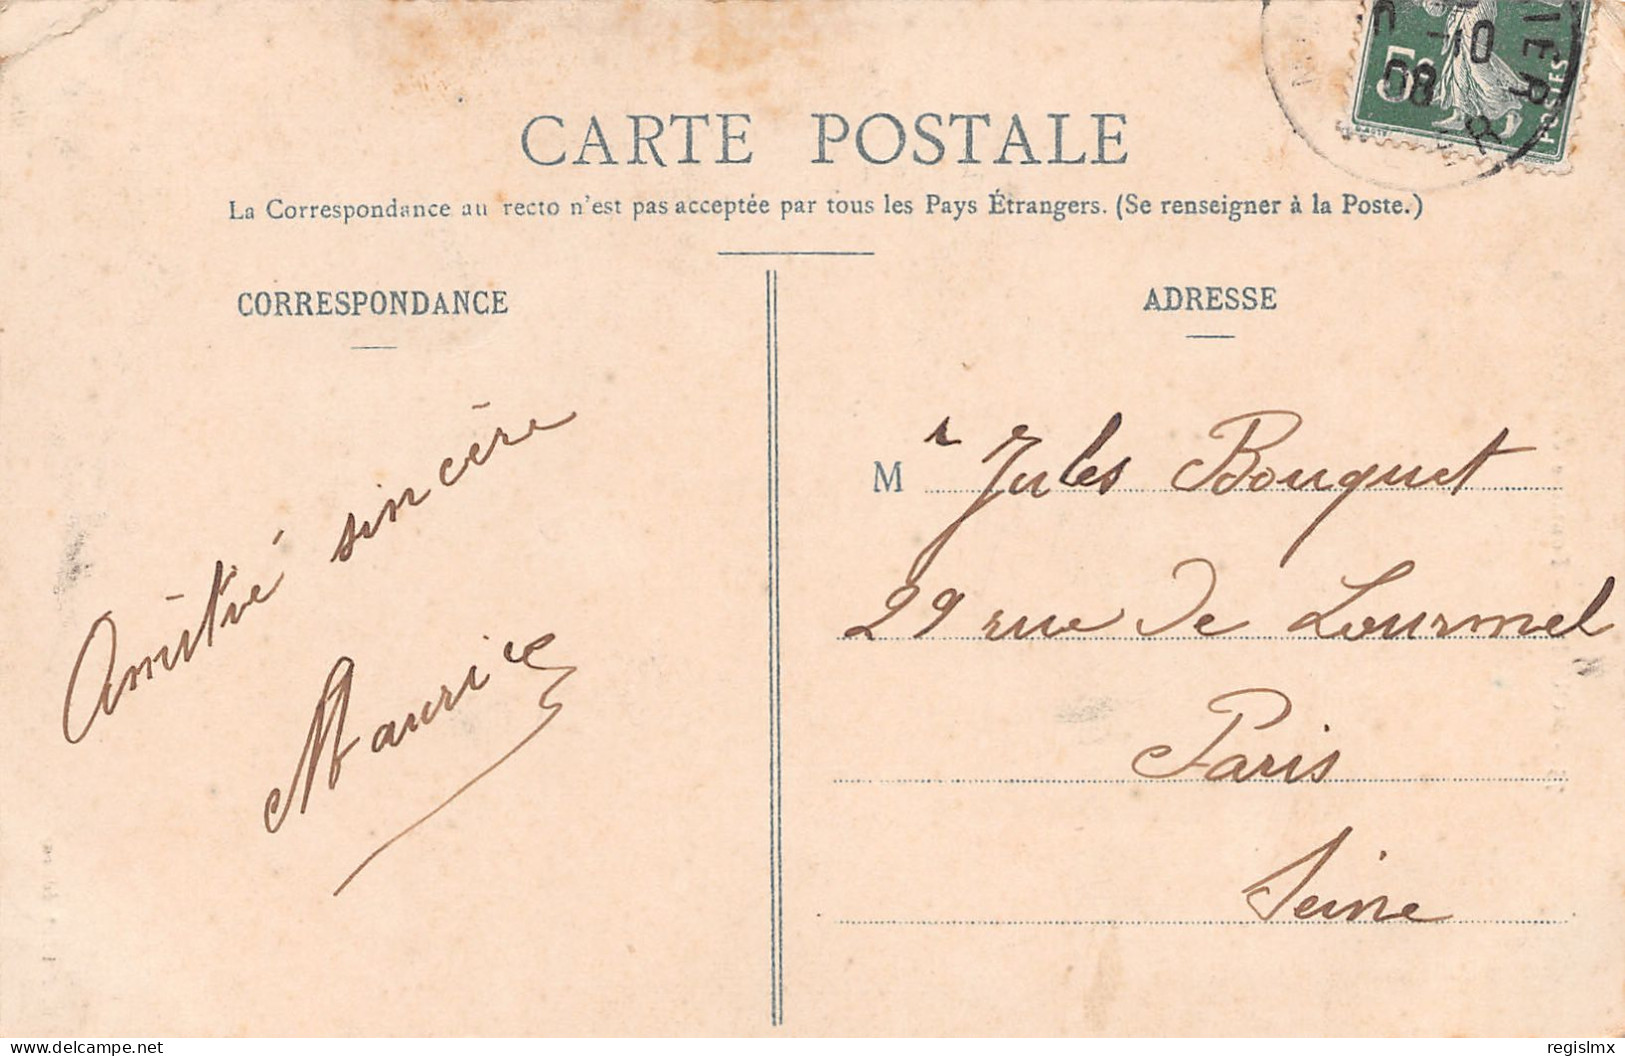 CARTE POSTALE
La Correspondance au recto n'est pas acceptée par tous les Pays Étrangers. (Se renseigner à la Poste.)
CORRESPONDANCE
Amitié sincère
Maurice
ADRESSE
Mr Jules Bouquet
29 rue de Lourmel
Paris
Seine
5c
POSTES
08
delcampe.net
regislmx